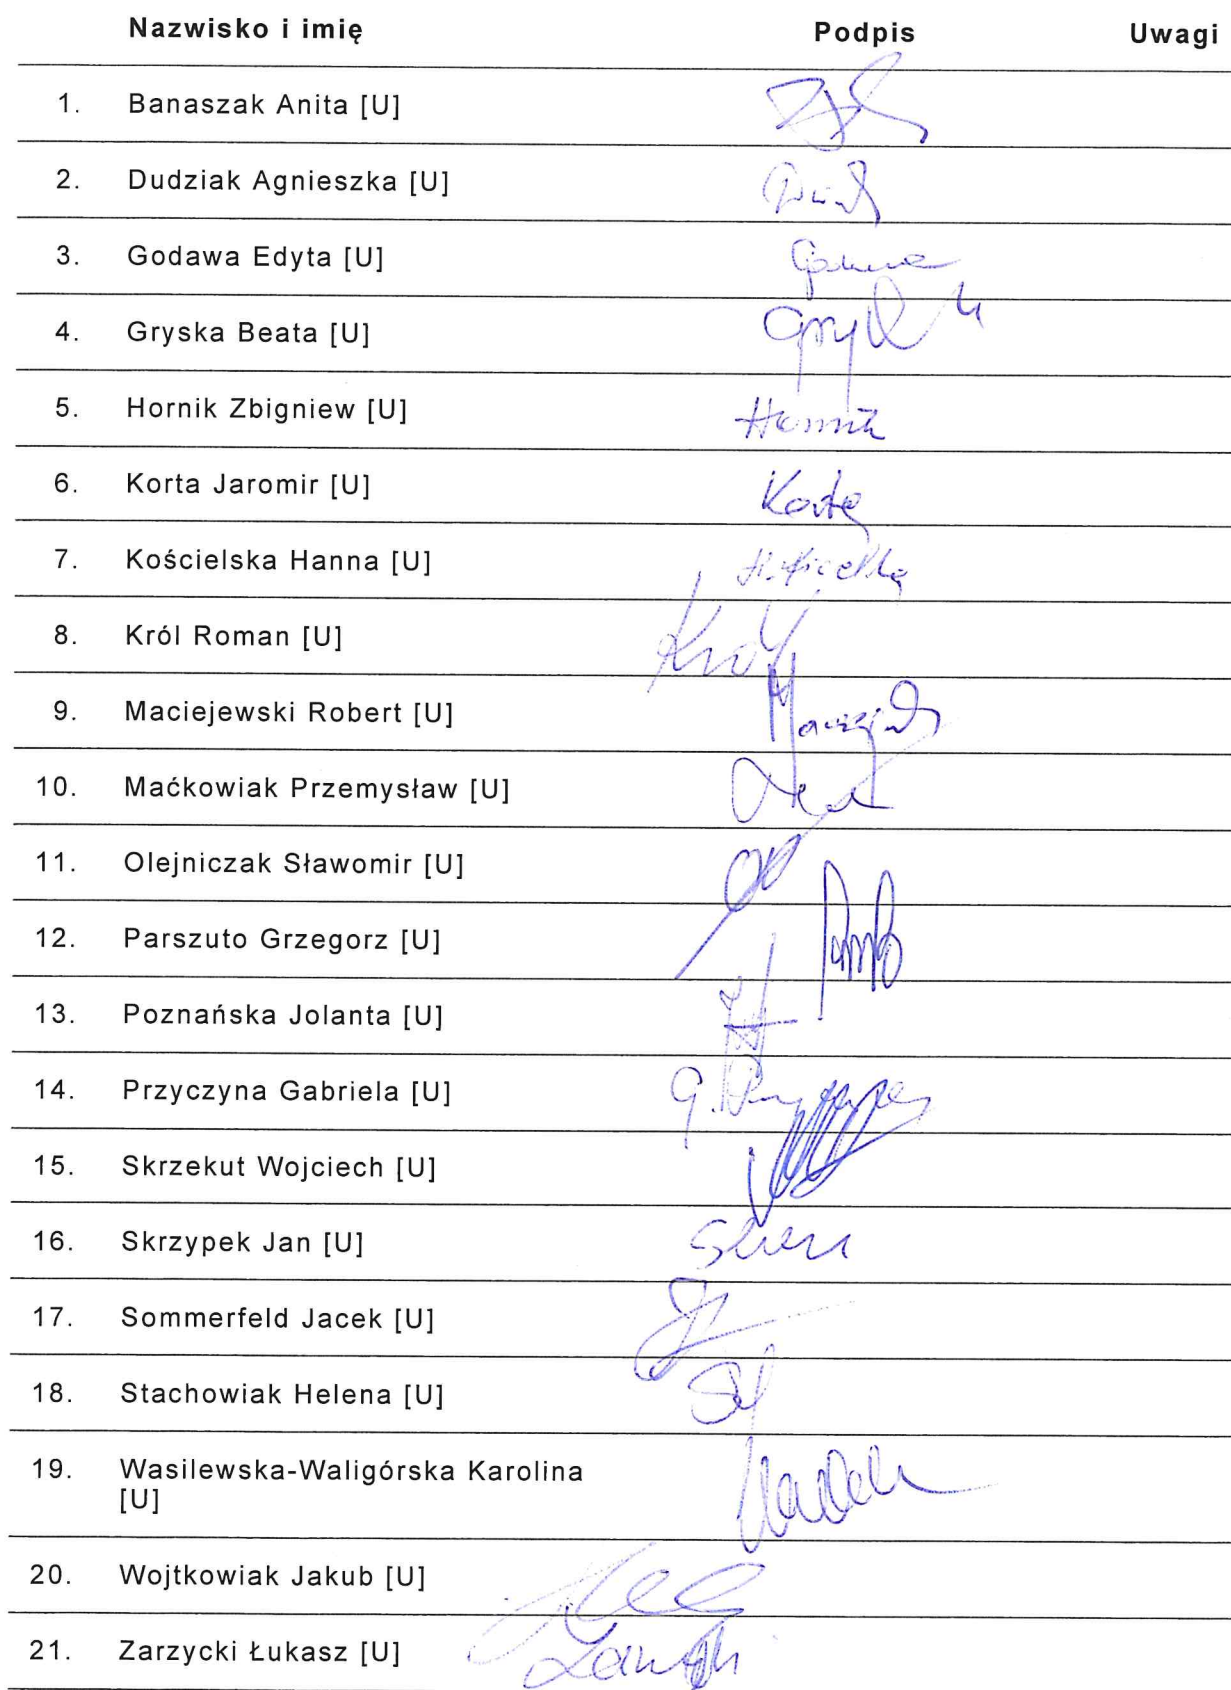 Nazwisko i imię Podpis Uwagi
1. Banaszak Anita [U]
2. Dudziak Agnieszka [U]
3. Godawa Edyta [U]
4. Gryska Beata [U]
5. Hornik Zbigniew [U] Hornik
6. Korta Jaromir [U] Korta
7. Kościelska Hanna [U]
8. Król Roman [U] Król
9. Maciejewski Robert [U]
10. Maćkowiak Przemysław [U]
11. Olejniczak Sławomir [U]
12. Parszuto Grzegorz [U]
13. Poznańska Jolanta [U]
14. Przyczyna Gabriela [U]
15. Skrzekut Wojciech [U]
16. Skrzypek Jan [U]
17. Sommerfeld Jacek [U]
18. Stachowiak Helena [U]
19. Wasilewska-Waligórska Karolina
[U]
20. Wojtkowiak Jakub [U]
21. Zarzycki Łukasz [U]